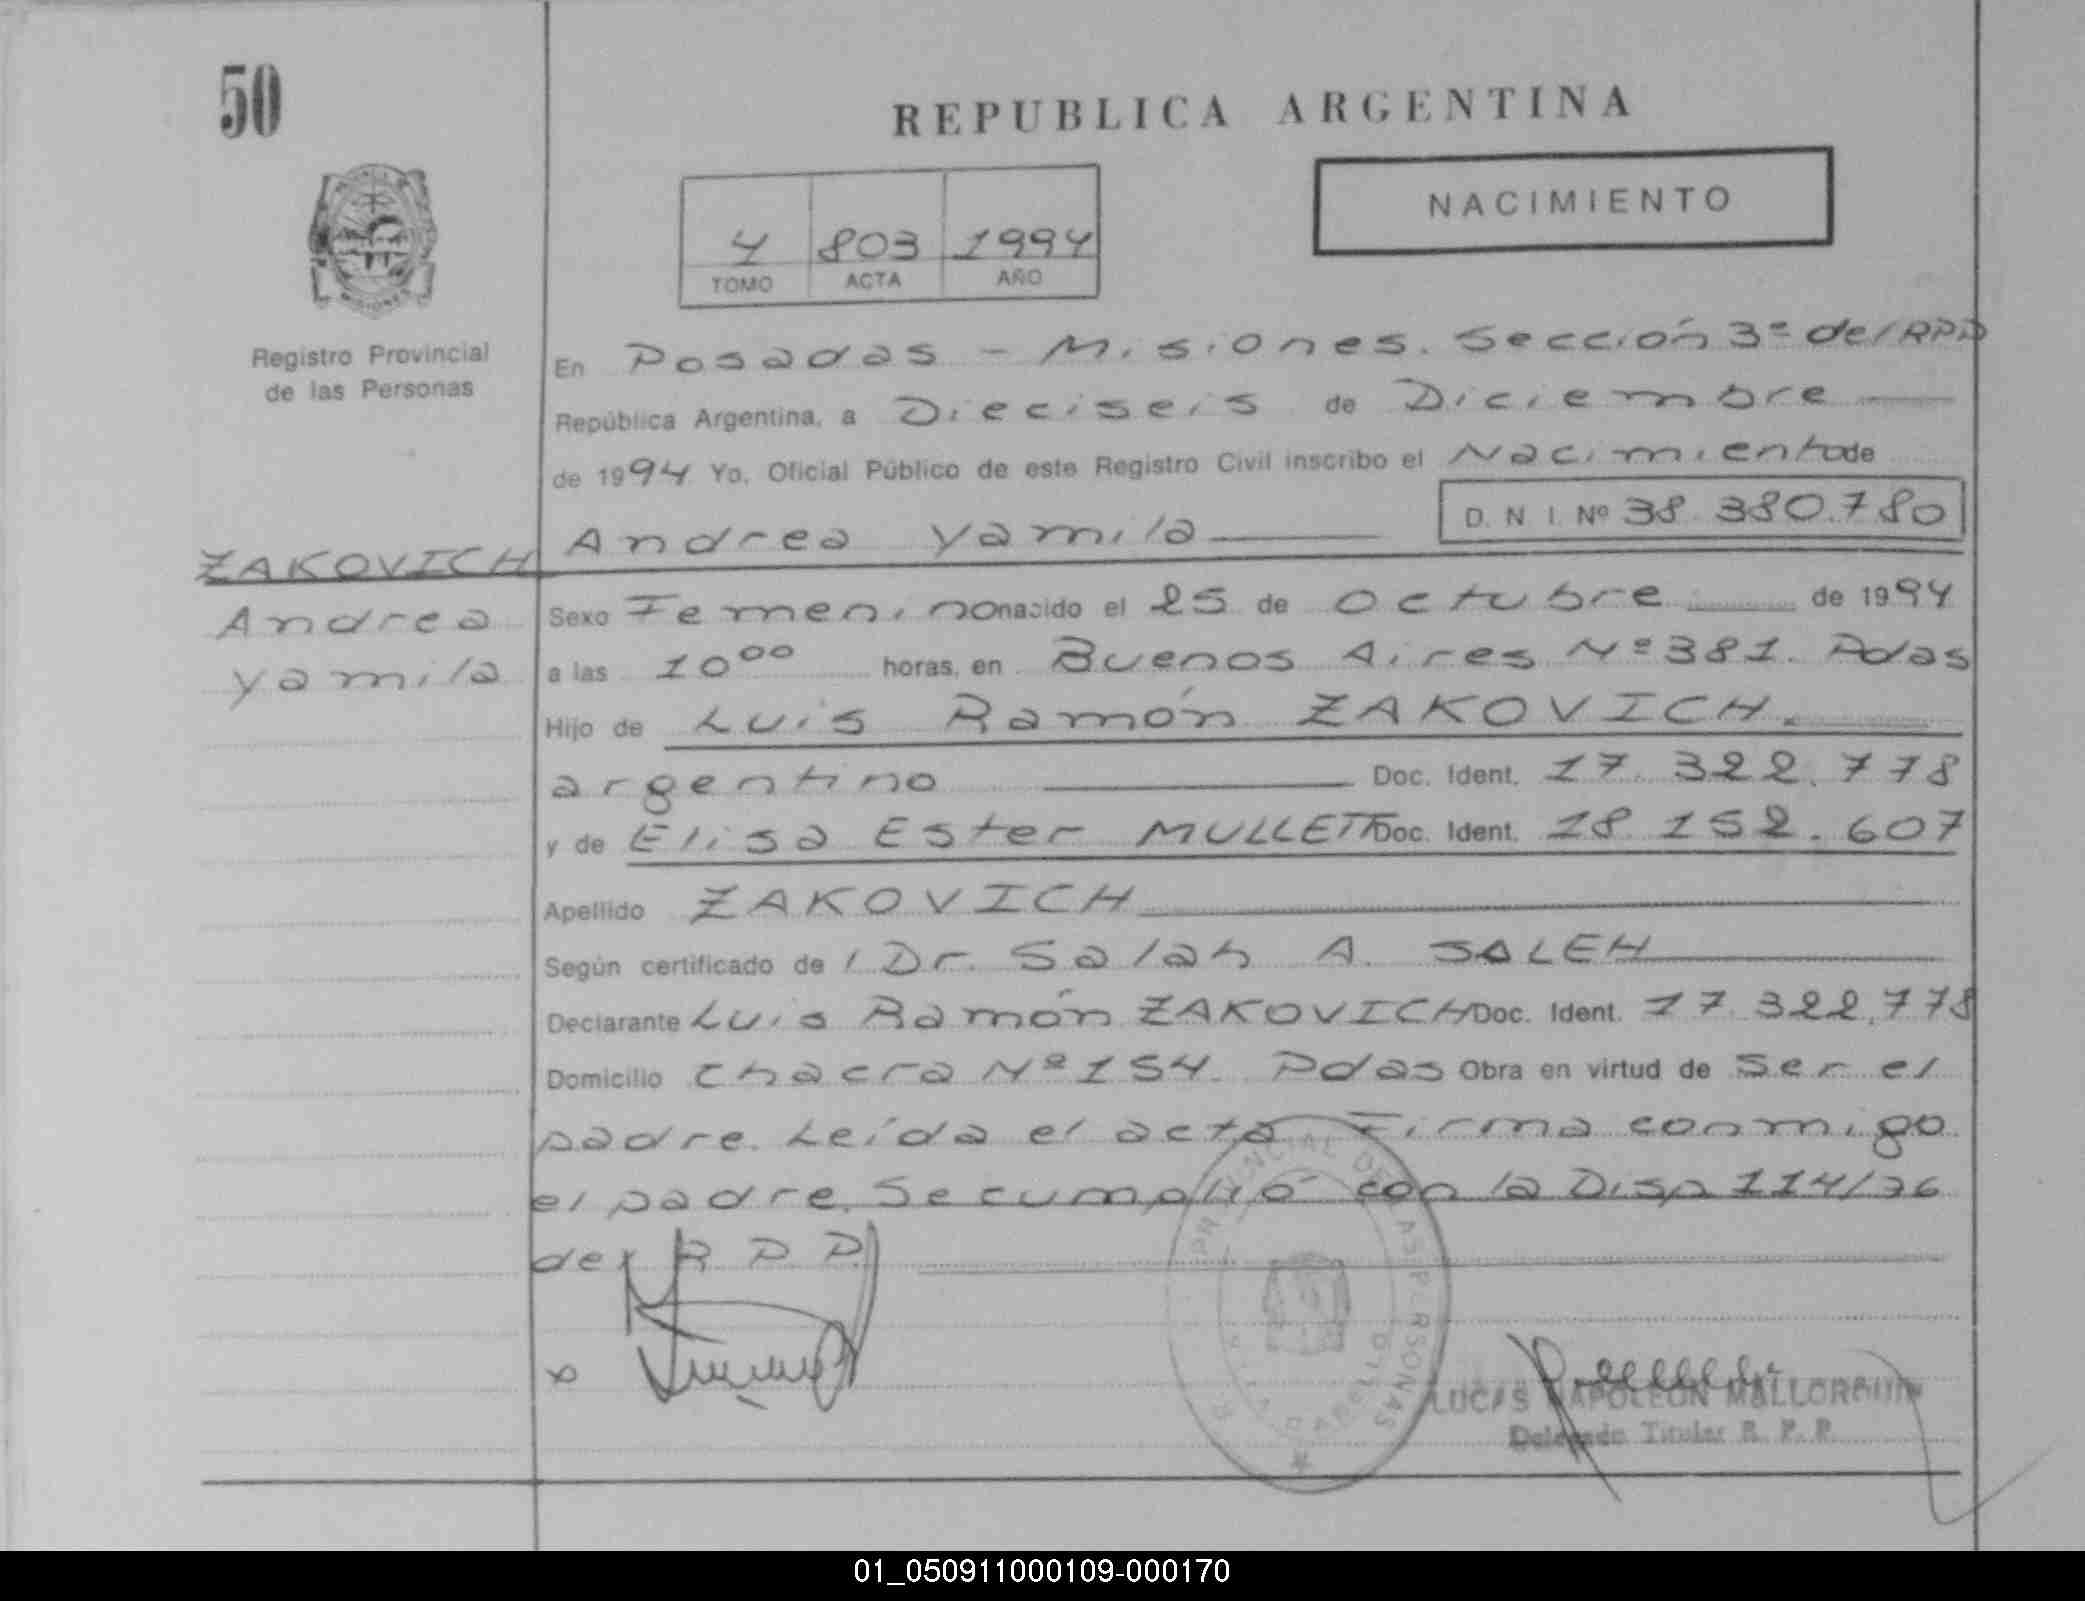 50
REPUBLICA ARGENTINA
NACIMIENTO
4 803 1994
TOMO ACTA AÑO
Registro Provincial
de las Personas
En Posadas - Misiones. Sección 3ª del RPP
República Argentina, a Dieciseis de Diciembre
de 1994 Yo, Oficial Público de este Registro Civil inscribo el Nacimiento de
Andrea Yamila D. N. I. Nº 38.380.780
ZAKOVICH
Andrea
Yamila
Sexo Femenino nacido el 25 de Octubre de 1994
a las 10⁰⁰ horas, en Buenos Aires Nº 381. Pdas
Hijo de Luis Ramón ZAKOVICH.
argentino Doc. Ident. 17.322.778
y de Elisa Ester MULLETT Doc. Ident. 18.152.607
Apellido ZAKOVICH
Según certificado de l Dr. Salah A. SALEH
Declarante Luis Ramón ZAKOVICH Doc. Ident. 17.322.778
Domicilio Chacra Nº 154. Pdas Obra en virtud de Ser el
padre. Leída el acta Firma conmigo
el padre. Se cumplió con la Disp 114/76
del R.P.P.
x
LUCAS NAPOLEON MALLORQUIN
Delegado Titular R. P. P.
01_050911000109-000170